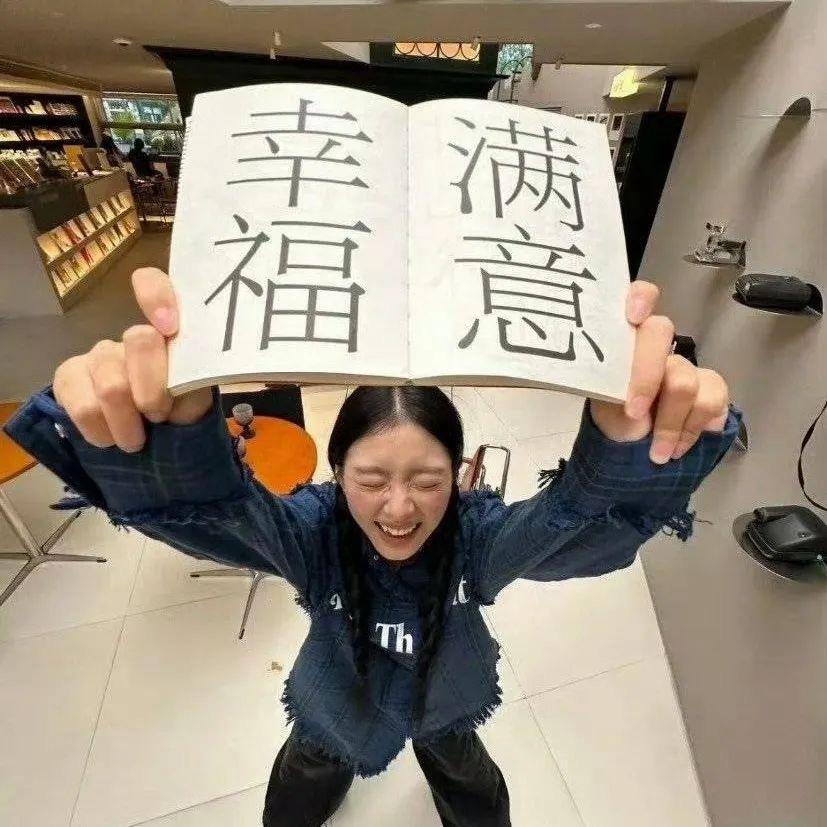 幸 满
福 意
Th